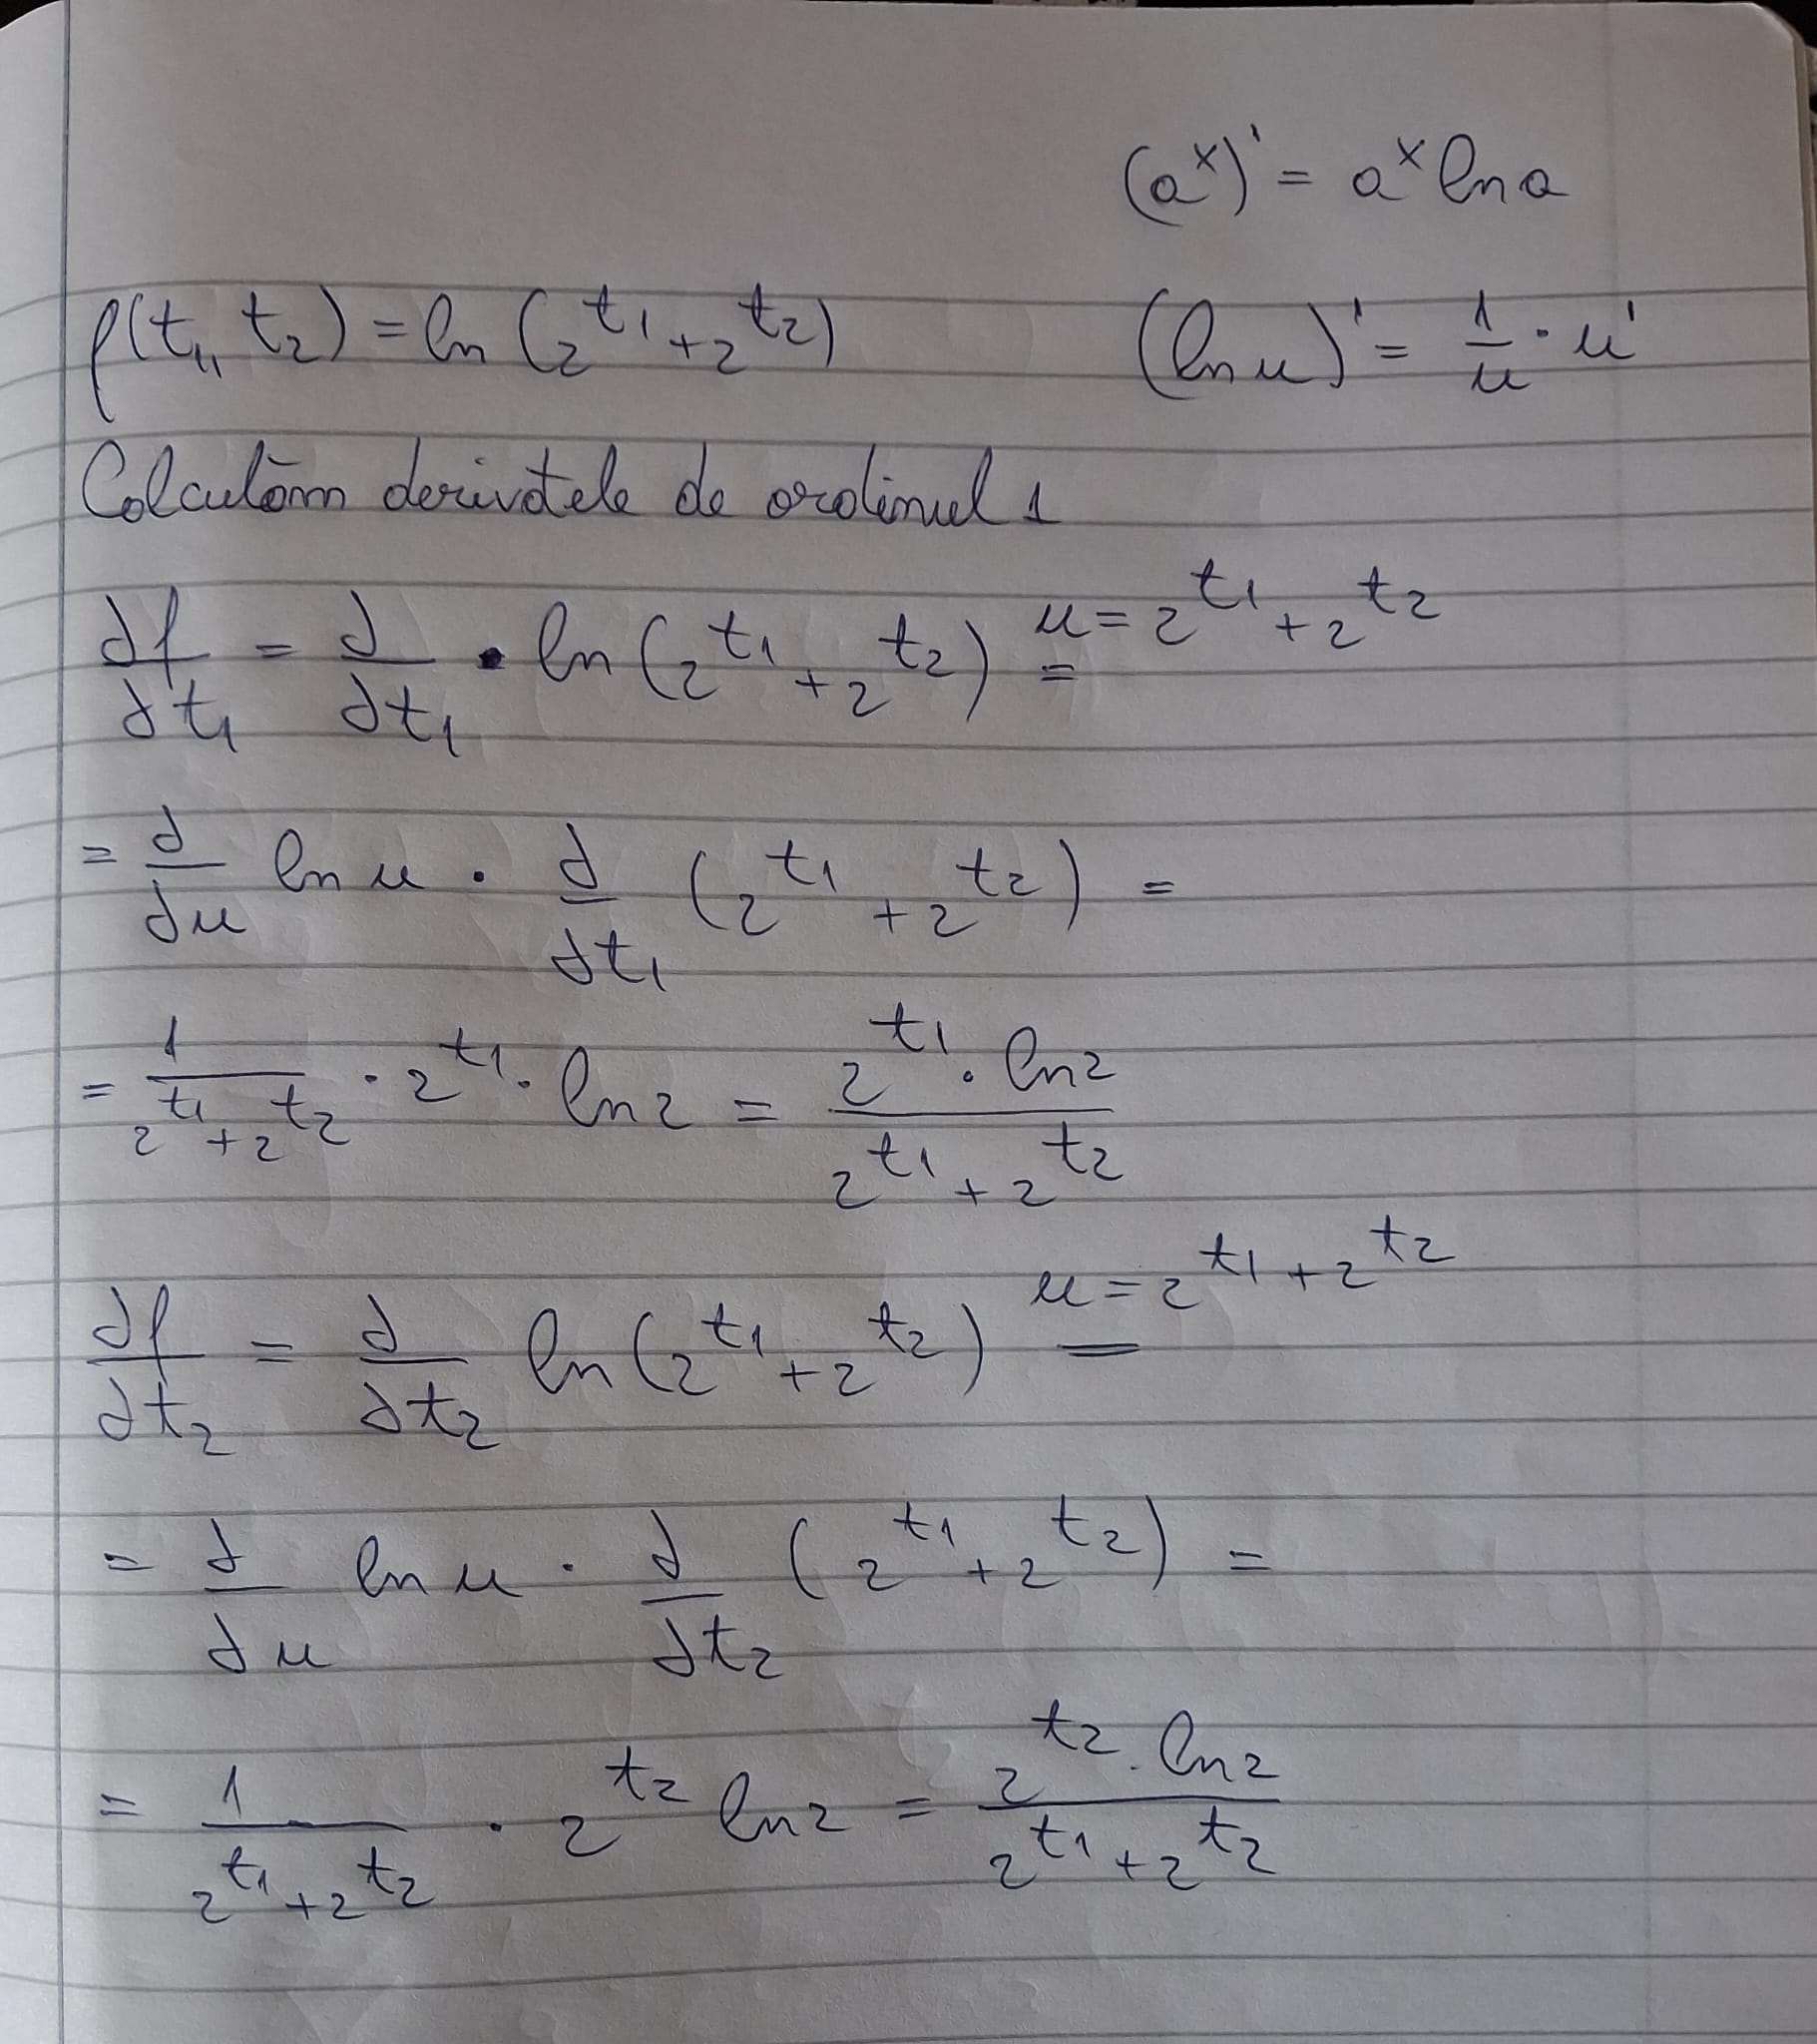 (aˣ)' = aˣ ln a
f(t₁, t₂) = ln (2^t₁ + 2^t₂)
(ln u)' = 1/u · u'
Calculăm derivatele de ordinul 1
∂f/∂t₁ = ∂/∂t₁ · ln (2^t₁ + 2^t₂) = u = 2^t₁ + 2^t₂
= ∂/∂u ln u · ∂/∂t₁ (2^t₁ + 2^t₂) =
= 1/(2^t₁ + 2^t₂) · 2^t₁ · ln 2 = (2^t₁ · ln 2)/(2^t₁ + 2^t₂)
∂f/∂t₂ = ∂/∂t₂ ln (2^t₁ + 2^t₂) = u = 2^t₁ + 2^t₂
= ∂/∂u ln u · ∂/∂t₂ (2^t₁ + 2^t₂) =
= 1/(2^t₁ + 2^t₂) · 2^t₂ ln 2 = (2^t₂ · ln 2)/(2^t₁ + 2^t₂)